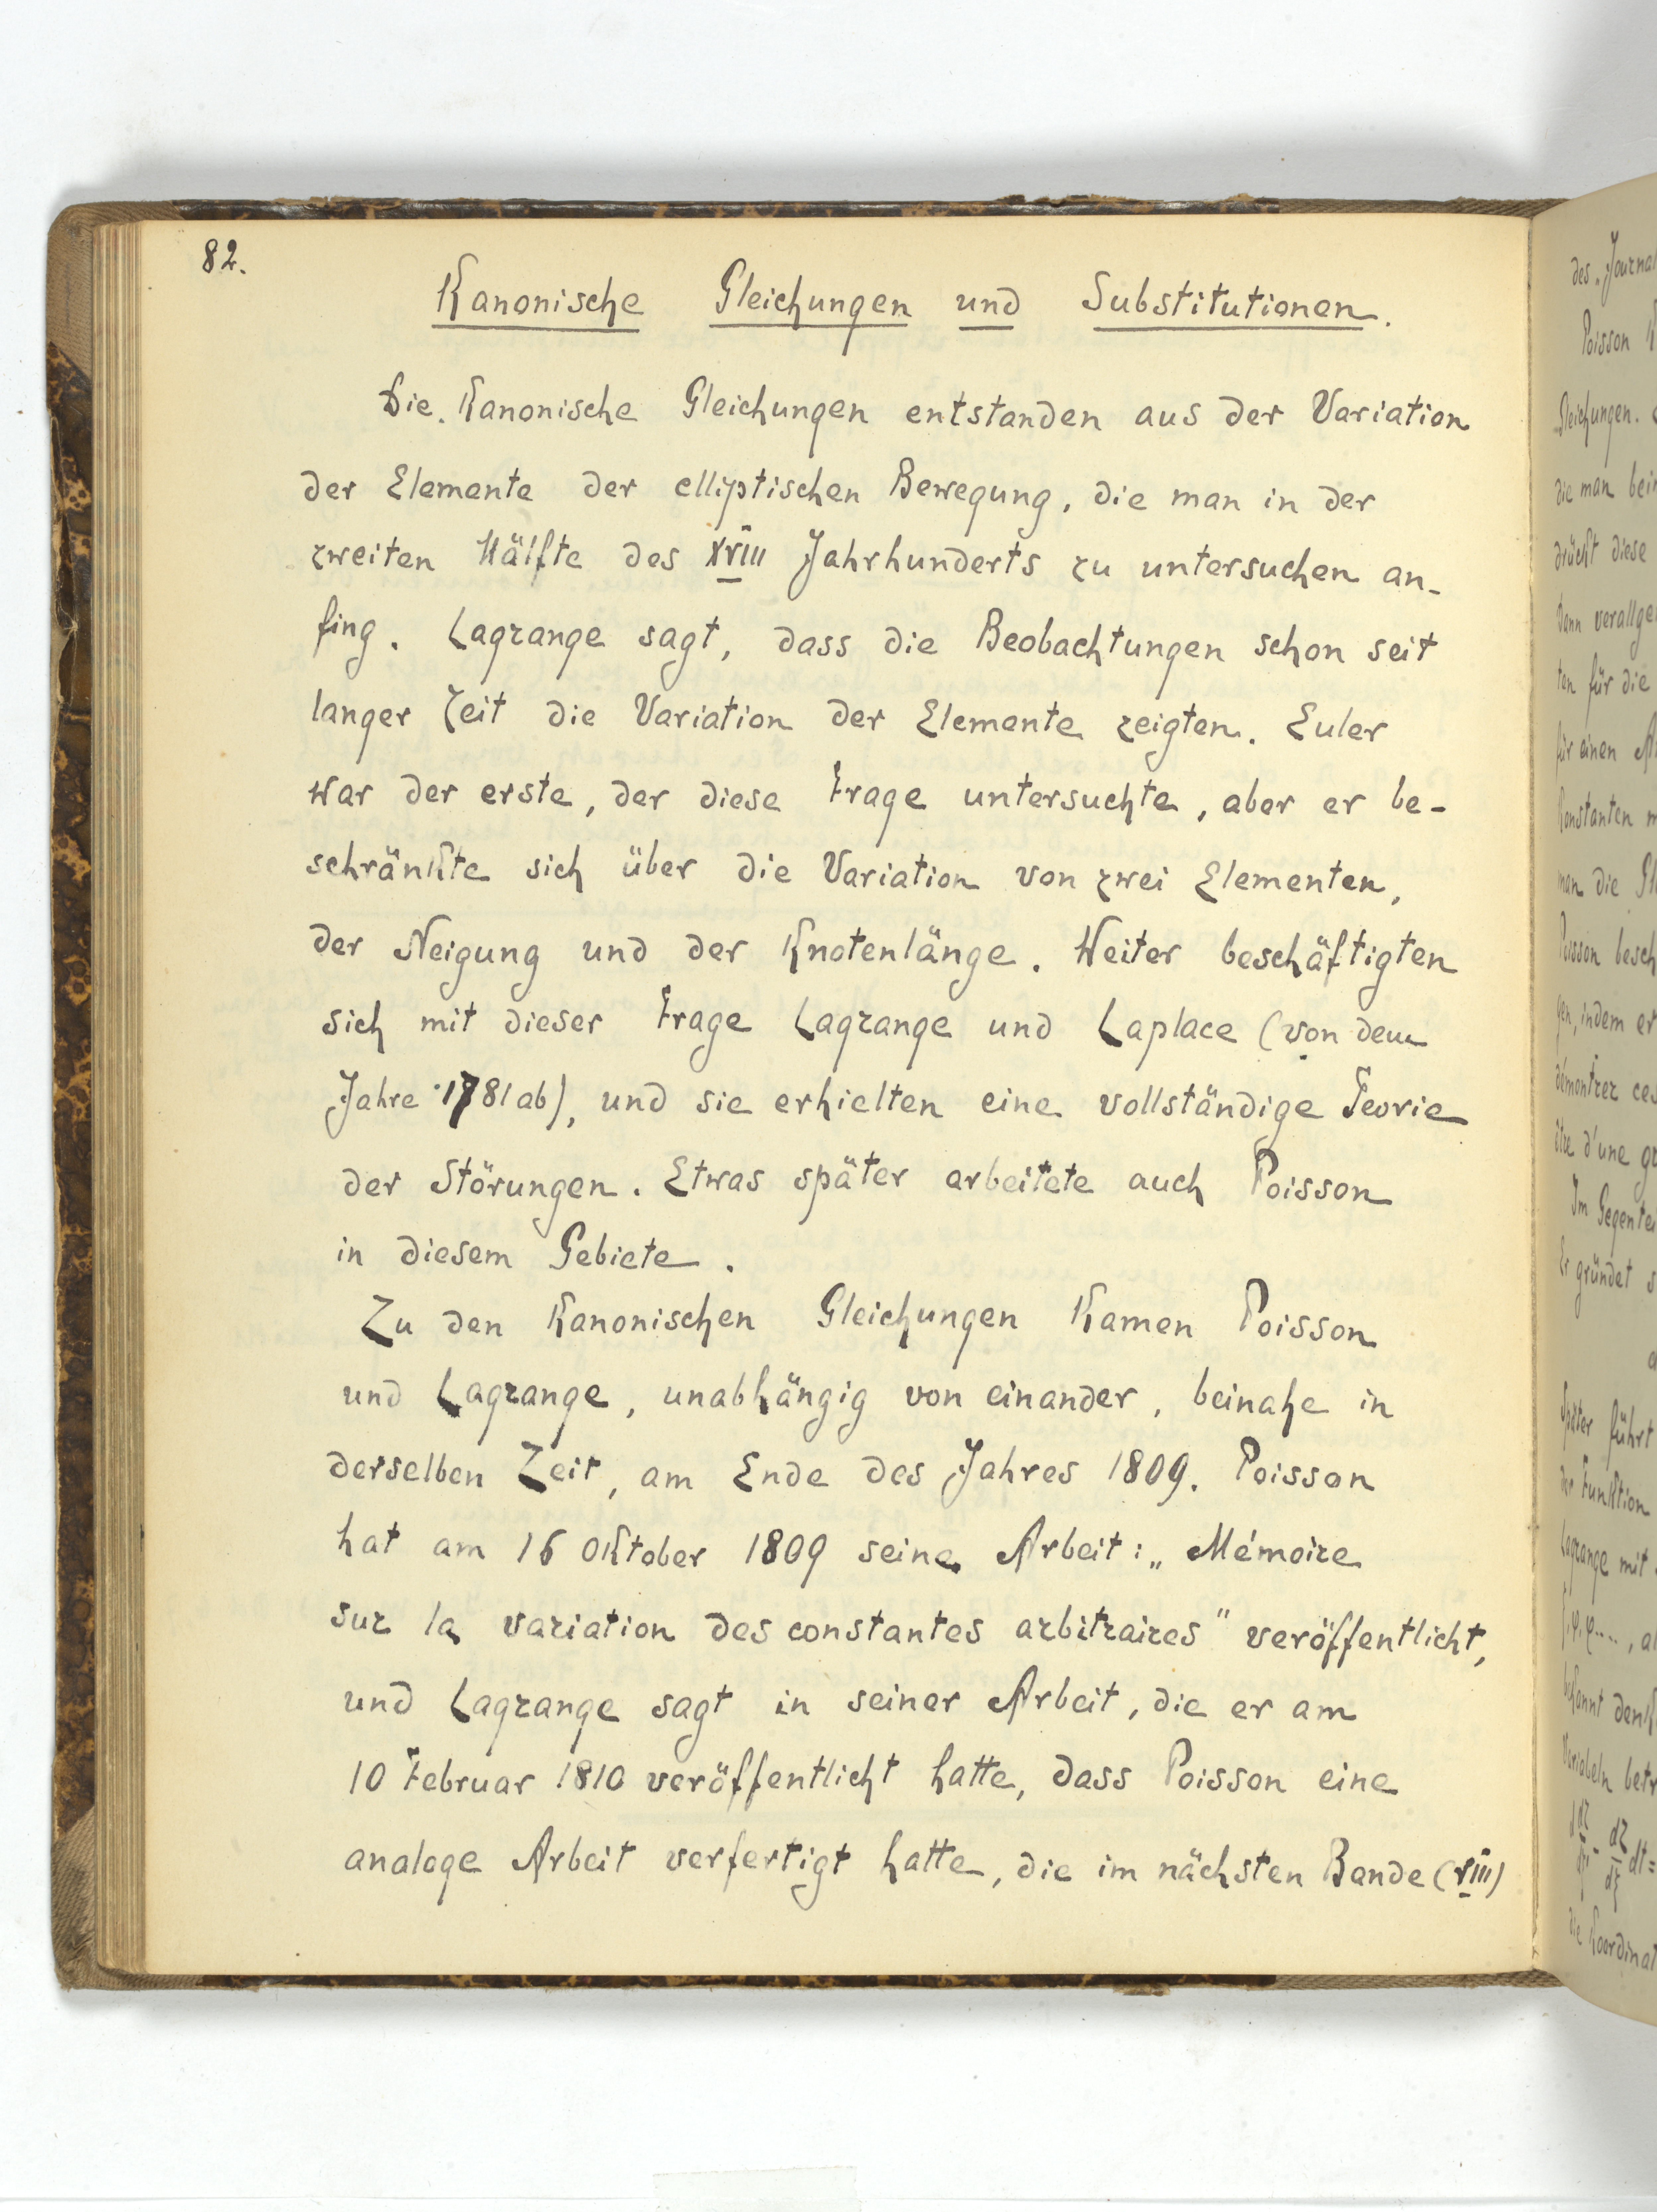 82.
Kanonische Gleichungen und Substitutionen.
Die Kanonische Gleichungen entstanden aus der Variation
der Elemente der elliptischen Bewegung, die man in der
zweiten Hälfte des XVIII Jahrhunderts zu untersuchen an-
fing. Lagrange sagt, dass die Beobachtungen schon seit
langer Zeit die Variation der Elemente zeigten. Euler
war der erste, der diese Frage untersuchte, aber er be-
schränkte sich über die Variation von zwei Elementen,
der Neigung und der Knotenlänge. Weiter beschäftigten
sich mit dieser Frage Lagrange und Laplace (von dem
Jahre 1781 ab), und sie erhielten eine vollständige Teorie
der Störungen. Etwas später arbeitete auch Poisson
in diesem Gebiete.
Zu den Kanonischen Gleichungen Kamen Poisson
und Lagrange, unabhängig von einander, beinahe in
derselben Zeit, am Ende des Jahres 1809. Poisson
hat am 16 Oktober 1809 seine Arbeit: „Mémoire
sur la variation des constantes arbitraires" veröffentlicht,
und Lagrange sagt in seiner Arbeit, die er am
10 Februar 1810 veröffentlicht hatte, dass Poisson eine
analoge Arbeit verfertigt hatte, die im nächsten Bande (VIII)
des Journal
Poisson
Gleichungen.
die man
drückt diese
dann
ten für die
für einen
Konstanten
man die
Poisson
gen, indem er
démontrer
être d'une
Im
Er gründet
Später führt
der Funktion
Lagrange mit